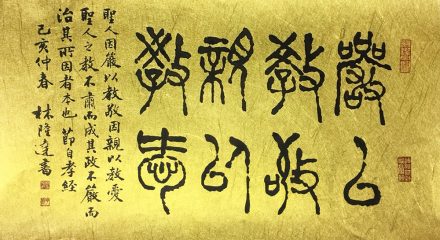 嚴以
教敬
親以
教愛
聖人因嚴以教敬因親以教愛
聖人之教不肅而成其政不嚴而
治其所因者本也 節自孝經
己亥仲春 林隆達書